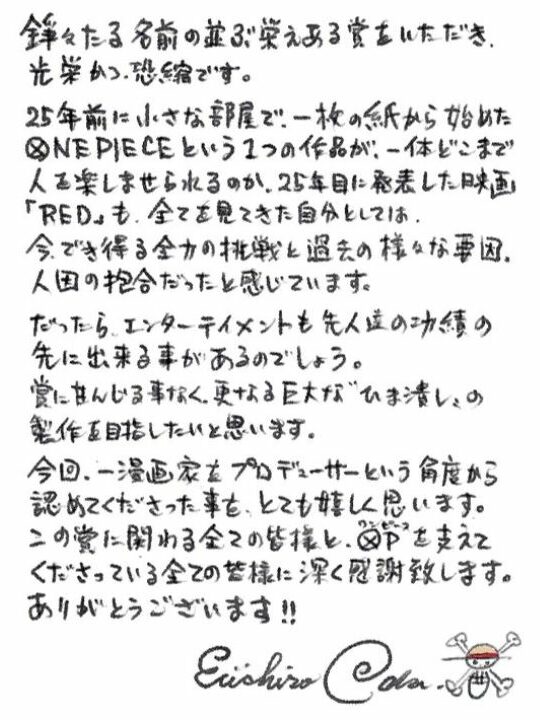 錚々たる名前の並ぶ栄えある賞をいただき、
光栄かつ、恐縮です。
25年前に小さな部屋で、一枚の紙から始めた
ONE PIECEという1つの作品が、一体どこまで
人を楽しませられるのか、25年目に発表した映画
「RED」も、全てを見てきた自分としては、
今、でき得る全力の挑戦と過去の様々な要因、
人因の抱合だったと感じています。
だったら、エンターテイメントも先人達の功績の
先に出来る事があるのでしょう。
賞に甘んじる事なく、更なる巨大な“ひま潰し”の
製作を目指したいと思います。
今回、一漫画家をプロデューサーという角度から
認めてくださった事を、とても嬉しく思います。
この賞に関わる全ての皆様と、OP(ワンピース)を支えて
くださっている全ての皆様に深く感謝致します。
ありがとうございます!!
Eiichiro Oda.